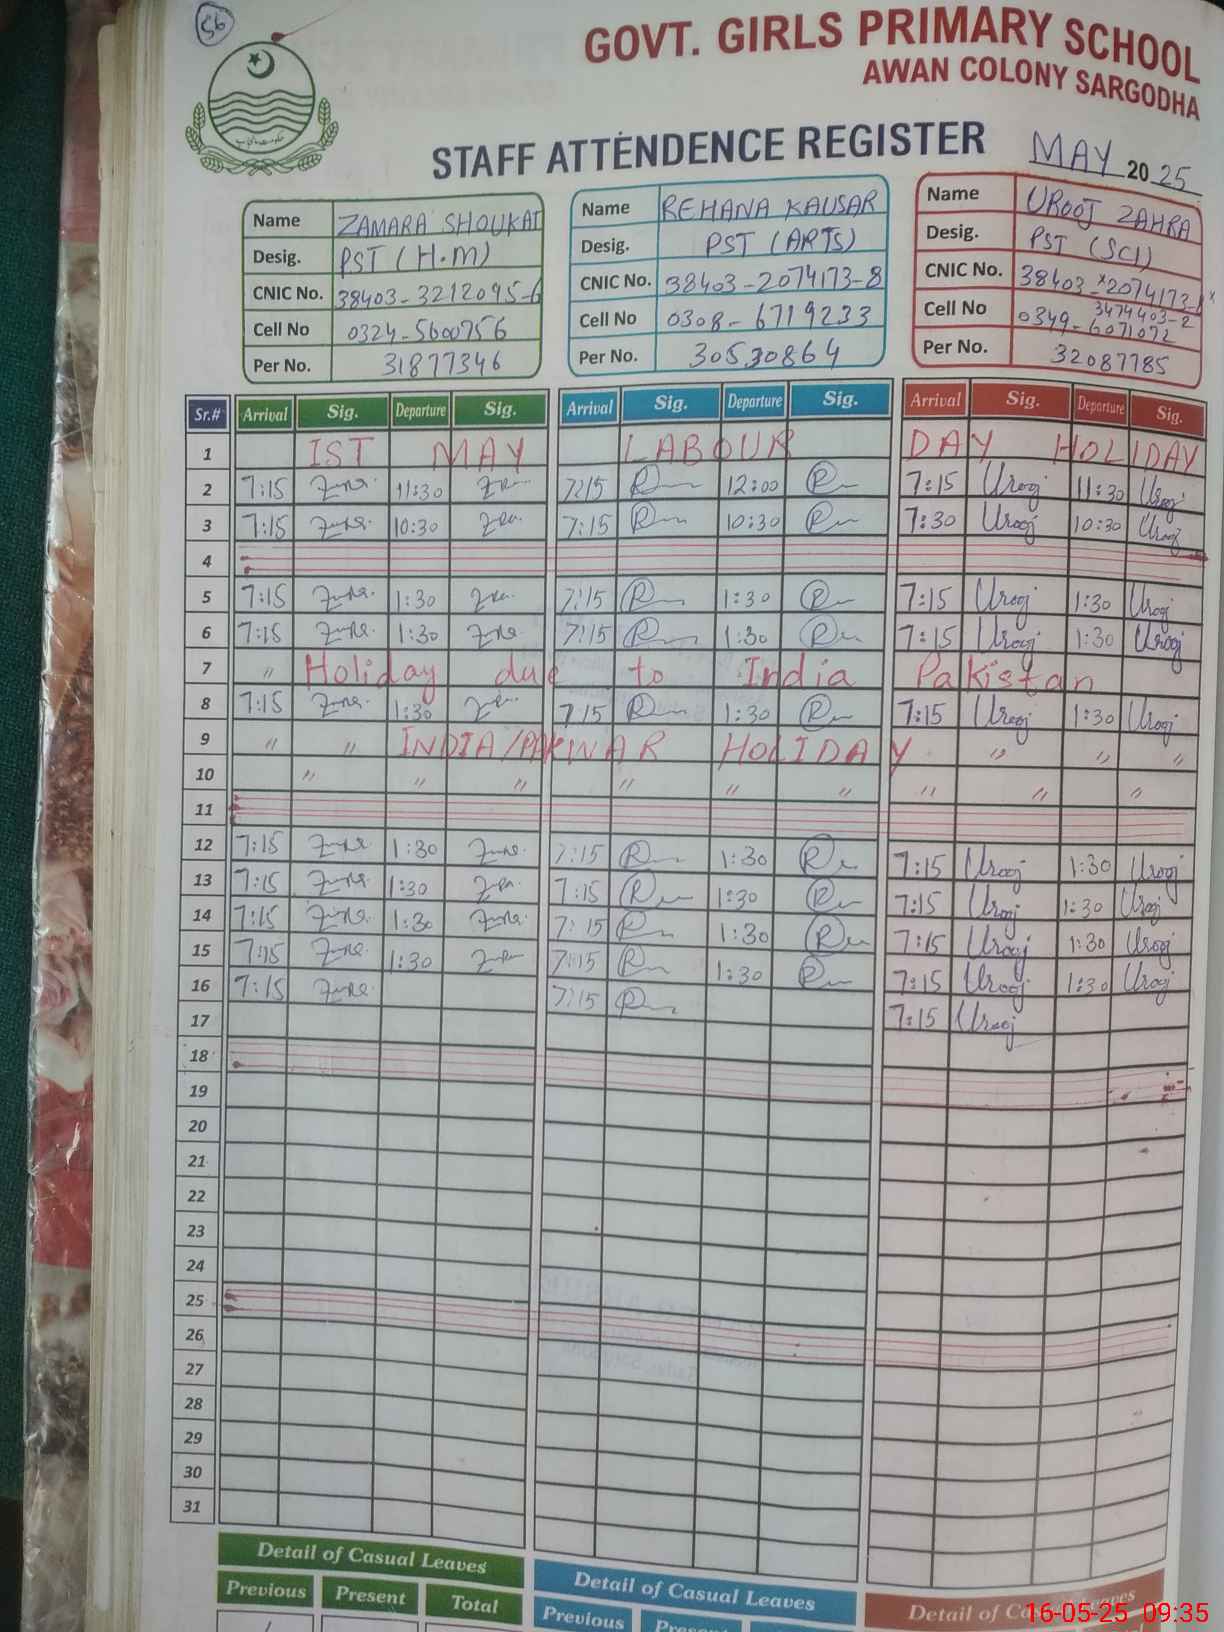 56
GOVT. GIRLS PRIMARY SCHOOL
AWAN COLONY SARGODHA
STAFF ATTENDENCE REGISTER MAY 2025
Name ZAMARA SHOUKAT
Desig. PST (H.M)
CNIC No. 38403-3212095-6
Cell No 0324-5600756
Per No. 31877346
Name REHANA KAUSAR
Desig. PST (ARTS)
CNIC No. 38403-2074173-8
Cell No 0308-6719233
Per No. 30530864
Name UROOJ ZAHRA
Desig. PST (SCI)
CNIC No. 38403-2074173-
3474403-2
Cell No 0349-6071072
Per No. 32087785
Sr.# Arrival Sig. Departure Sig. Arrival Sig. Departure Sig. Arrival Sig. Departure Sig.
1 IST MAY LABOUR DAY HOLIDAY
2 7:15 11:30 7:15 12:00 7:15 Urooj 11:30 Urooj
3 7:15 10:30 7:15 10:30 7:30 Urooj 10:30 Urooj
4
5 7:15 1:30 7:15 1:30 7:15 Urooj 1:30 Urooj
6 7:15 1:30 7:15 1:30 7:15 Urooj 1:30 Urooj
7 " Holiday due to India Pakistan
8 7:15 1:30 7:15 1:30 7:15 Urooj 1:30 Urooj
9 " " INDIA/PAK WAR HOLIDAY " " "
10 " " " " " " " " "
11
12 7:15 1:30 7:15 1:30 7:15 Urooj 1:30 Urooj
13 7:15 1:30 7:15 1:30 7:15 Urooj 1:30 Urooj
14 7:15 1:30 7:15 1:30 7:15 Urooj 1:30 Urooj
15 7:15 1:30 7:15 1:30 7:15 Urooj 1:30 Urooj
16 7:15 7:15 7:15 Urooj
17
18
19
20
21
22
23
24
25
26
27
28
29
30
31
Detail of Casual Leaves
Previous Present Total
Detail of Casual Leaves
Previous Present
Detail of Casual Leaves
16-05-25 09:35